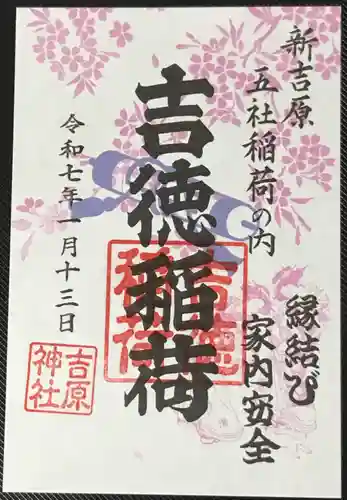 新吉原
五社稲荷の内
縁結び
家内安全
吉徳稲荷
吉徳稲荷
令和七年一月十三日
吉原神社